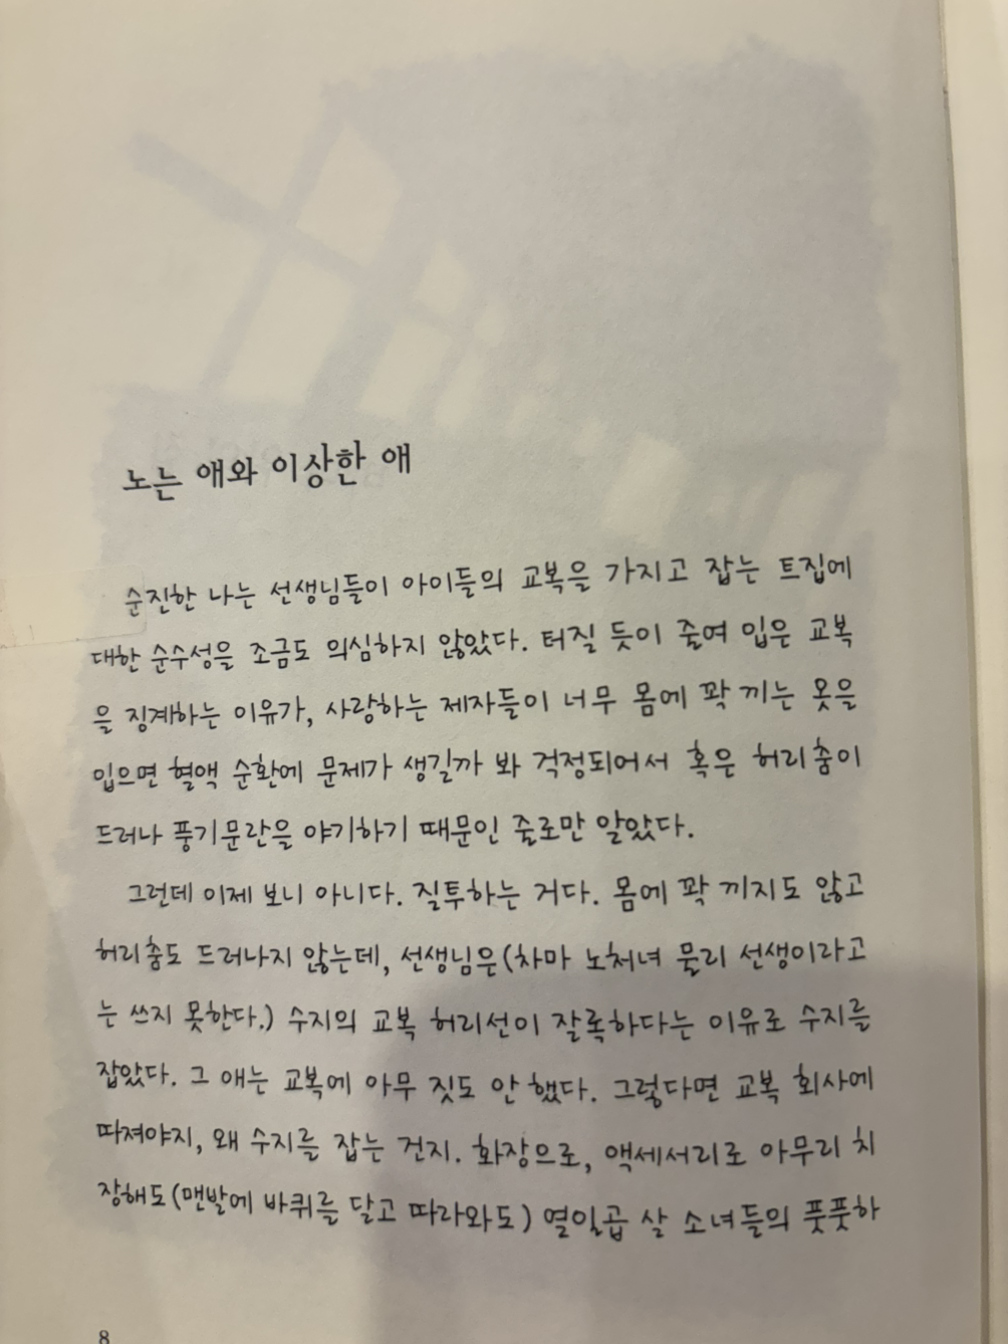 노는 애와 이상한 애
순진한 나는 선생님들이 아이들의 교복을 가지고 잡는 트집에
대한 순수성을 조금도 의심하지 않았다. 터질 듯이 줄여 입은 교복
을 징계하는 이유가, 사랑하는 제자들이 너무 몸에 꽉 끼는 옷을
입으면 혈액 순환에 문제가 생길까 봐 걱정되어서 혹은 허리춤이
드러나 풍기문란을 야기하기 때문인 줄로만 알았다.
그런데 이제 보니 아니다. 질투하는 거다. 몸에 꽉 끼지도 않고
허리춤도 드러나지 않는데, 선생님은(차마 노처녀 물리 선생이라고
는 쓰지 못한다.) 수지의 교복 허리선이 잘록하다는 이유로 수지를
잡았다. 그 애는 교복에 아무 짓도 안 했다. 그렇다면 교복 회사에
따져야지, 왜 수지를 잡는 건지. 화장으로, 액세서리로 아무리 치
장해도(맨발에 바퀴를 달고 따라와도) 열일곱 살 소녀들의 풋풋하
8